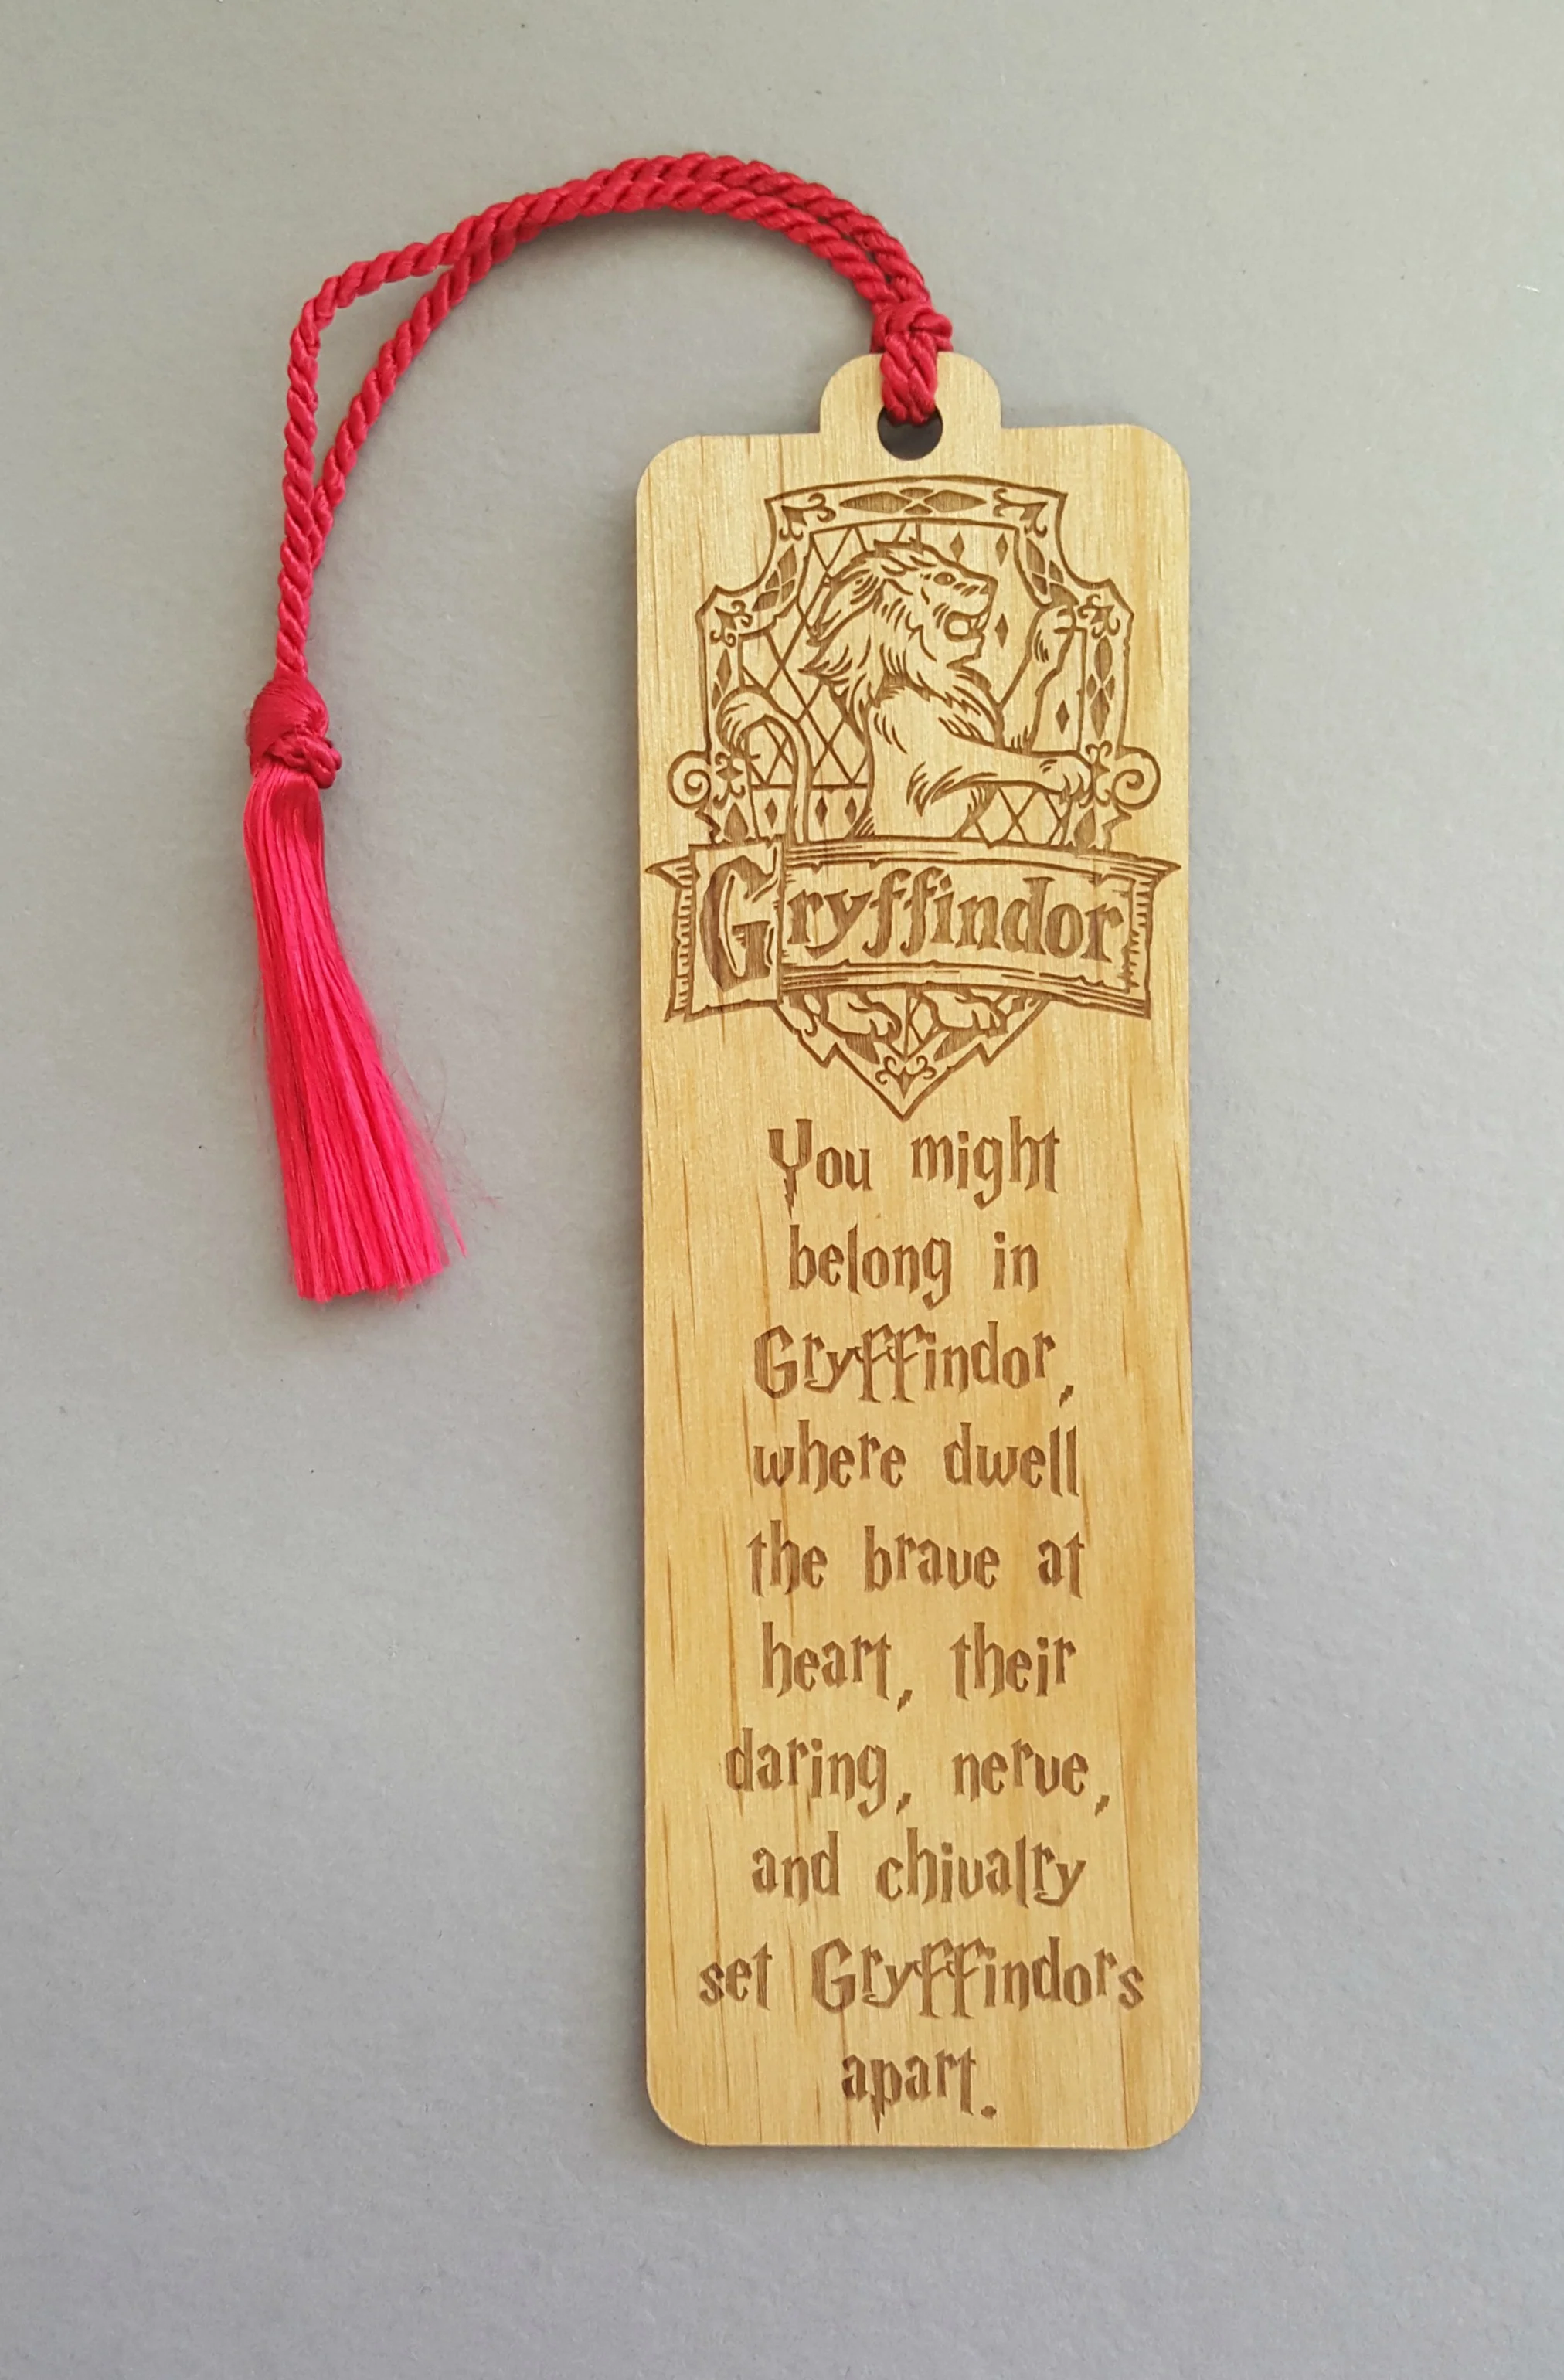 Gryffindor
You might
belong in
Gryffindor,
where dwell
the brave at
heart, their
daring, nerve,
and chivalry
set Gryffindors
apart.